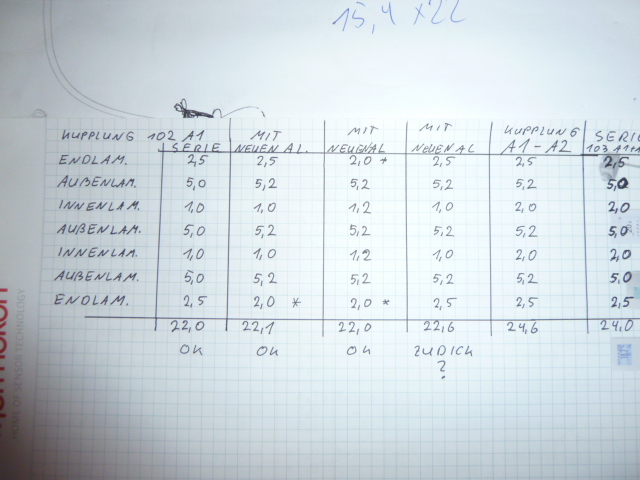 15,4 x 22
KUPPLUNG 102 A1 SERIE MIT NEUEN AL. MIT NEUENAL MIT NEUEN AL KUPPLUNG A1-A2 SERIE 103 A1+A
ENDLAM. 2,5 2,5 2,0 * 2,5 2,5 2,5
AUßENLAM. 5,0 5,2 5,2 5,2 5,2 5,0
INNENLAM. 1,0 1,0 1,2 1,0 2,0 2,0
AUßENLAM. 5,0 5,2 5,2 5,2 5,2 5,0
INNENLAM. 1,0 1,0 1,2 1,0 2,0 2,0
AUßENLAM. 5,0 5,2 5,2 5,2 5,2 5,0
ENDLAM. 2,5 2,0 * 2,0 * 2,5 2,5 2,5
22,0 22,1 22,0 22,6 24,6 24,0
OK OK OK ZU DICK
?
OF SENSOR TECHNOLOGY